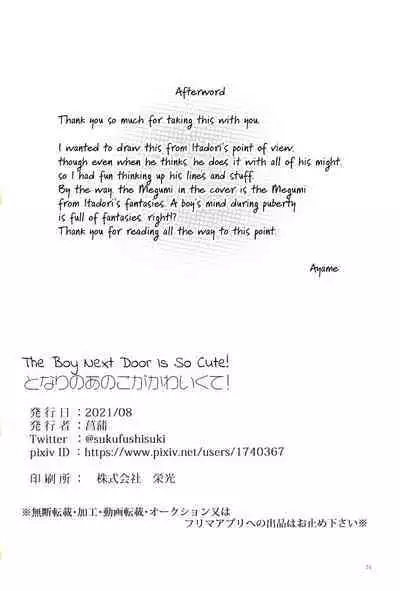 Afterword
Thank you so much for taking this with you.
I wanted to draw this from Itadori's point of view.
though even when he thinks, he does it with all of his might.
so I had fun thinking up his lines and stuff.
By the way, the Megumi in the cover is the Megumi
from Itadori's fantasies. A boy's mind during puberty
is full of fantasies, right!?
Thank you for reading all the way to this point.
Ayame
The Boy Next Door Is So Cute!
となりのあのこがかわいくて!
発行日：2021/08
発行者：菖蒲
Twitter：@sukufushisuki
pixiv ID：https://www.pixiv.net/users/1740367
印刷所： 株式会社 栄光
※無断転載・加工・動画転載・オークション又は
フリマアプリへの出品はお止め下さい※